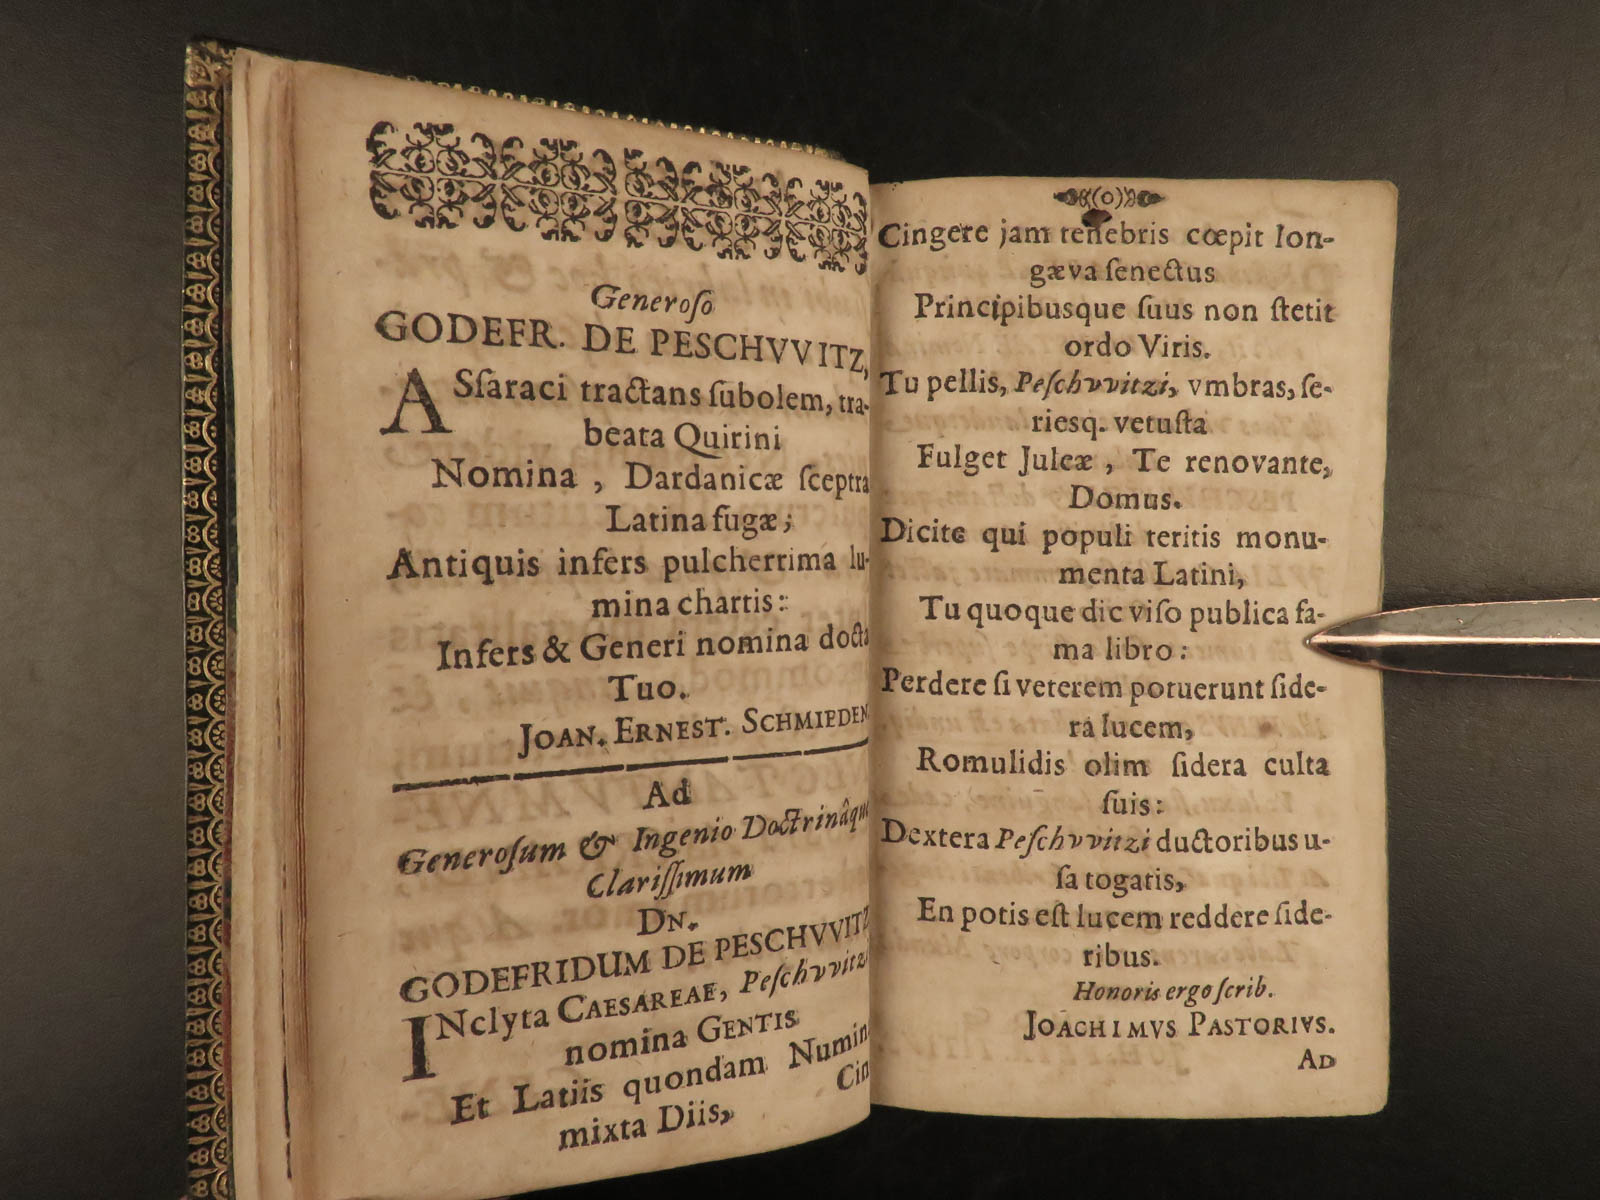 Generoſo
GODEFR. DE PESCHVVITZ,
ASſaraci tractans ſubolem, tra-
beata Quirini
Nomina , Dardanicæ ſceptra
Latina fugæ;
Antiquis inſers pulcherrima lu-
mina chartis:
Inſers & Generi nomina docta
Tuo.
JOAN. ERNEST. SCHMIEDEN
Ad
Generoſum & Ingenio Doctrinâque
Clariſſimum
DN.
GODEFRIDUM DE PESCHVVITZ
INclyta CAESAREAE, Peſchvvitzi
nomina GENTIS
Et Latiis quondam Numina
mixta Diis,
Cin
(o)
Cingere jam tenebris cœpit lon-
gæva ſenectus
Principibusque ſuus non ſtetit
ordo Viris.
Tu pellis, Peſchvvitzi, vmbras, ſe-
riesq. vetuſta
Fulget Juleæ , Te renovante,
Domus.
Dicite qui populi teritis monu-
menta Latini,
Tu quoque dic viſo publica fa-
ma libro :
Perdere ſi veterem potuerunt ſide-
ra lucem,
Romulidis olim ſidera culta
ſuis :
Dextera Peſchvvitzi ductoribus u-
ſa togatis,
En potis eſt lucem reddere ſide-
ribus.
Honoris ergo ſcrib.
JOACHIMVS PASTORIVS.
AD